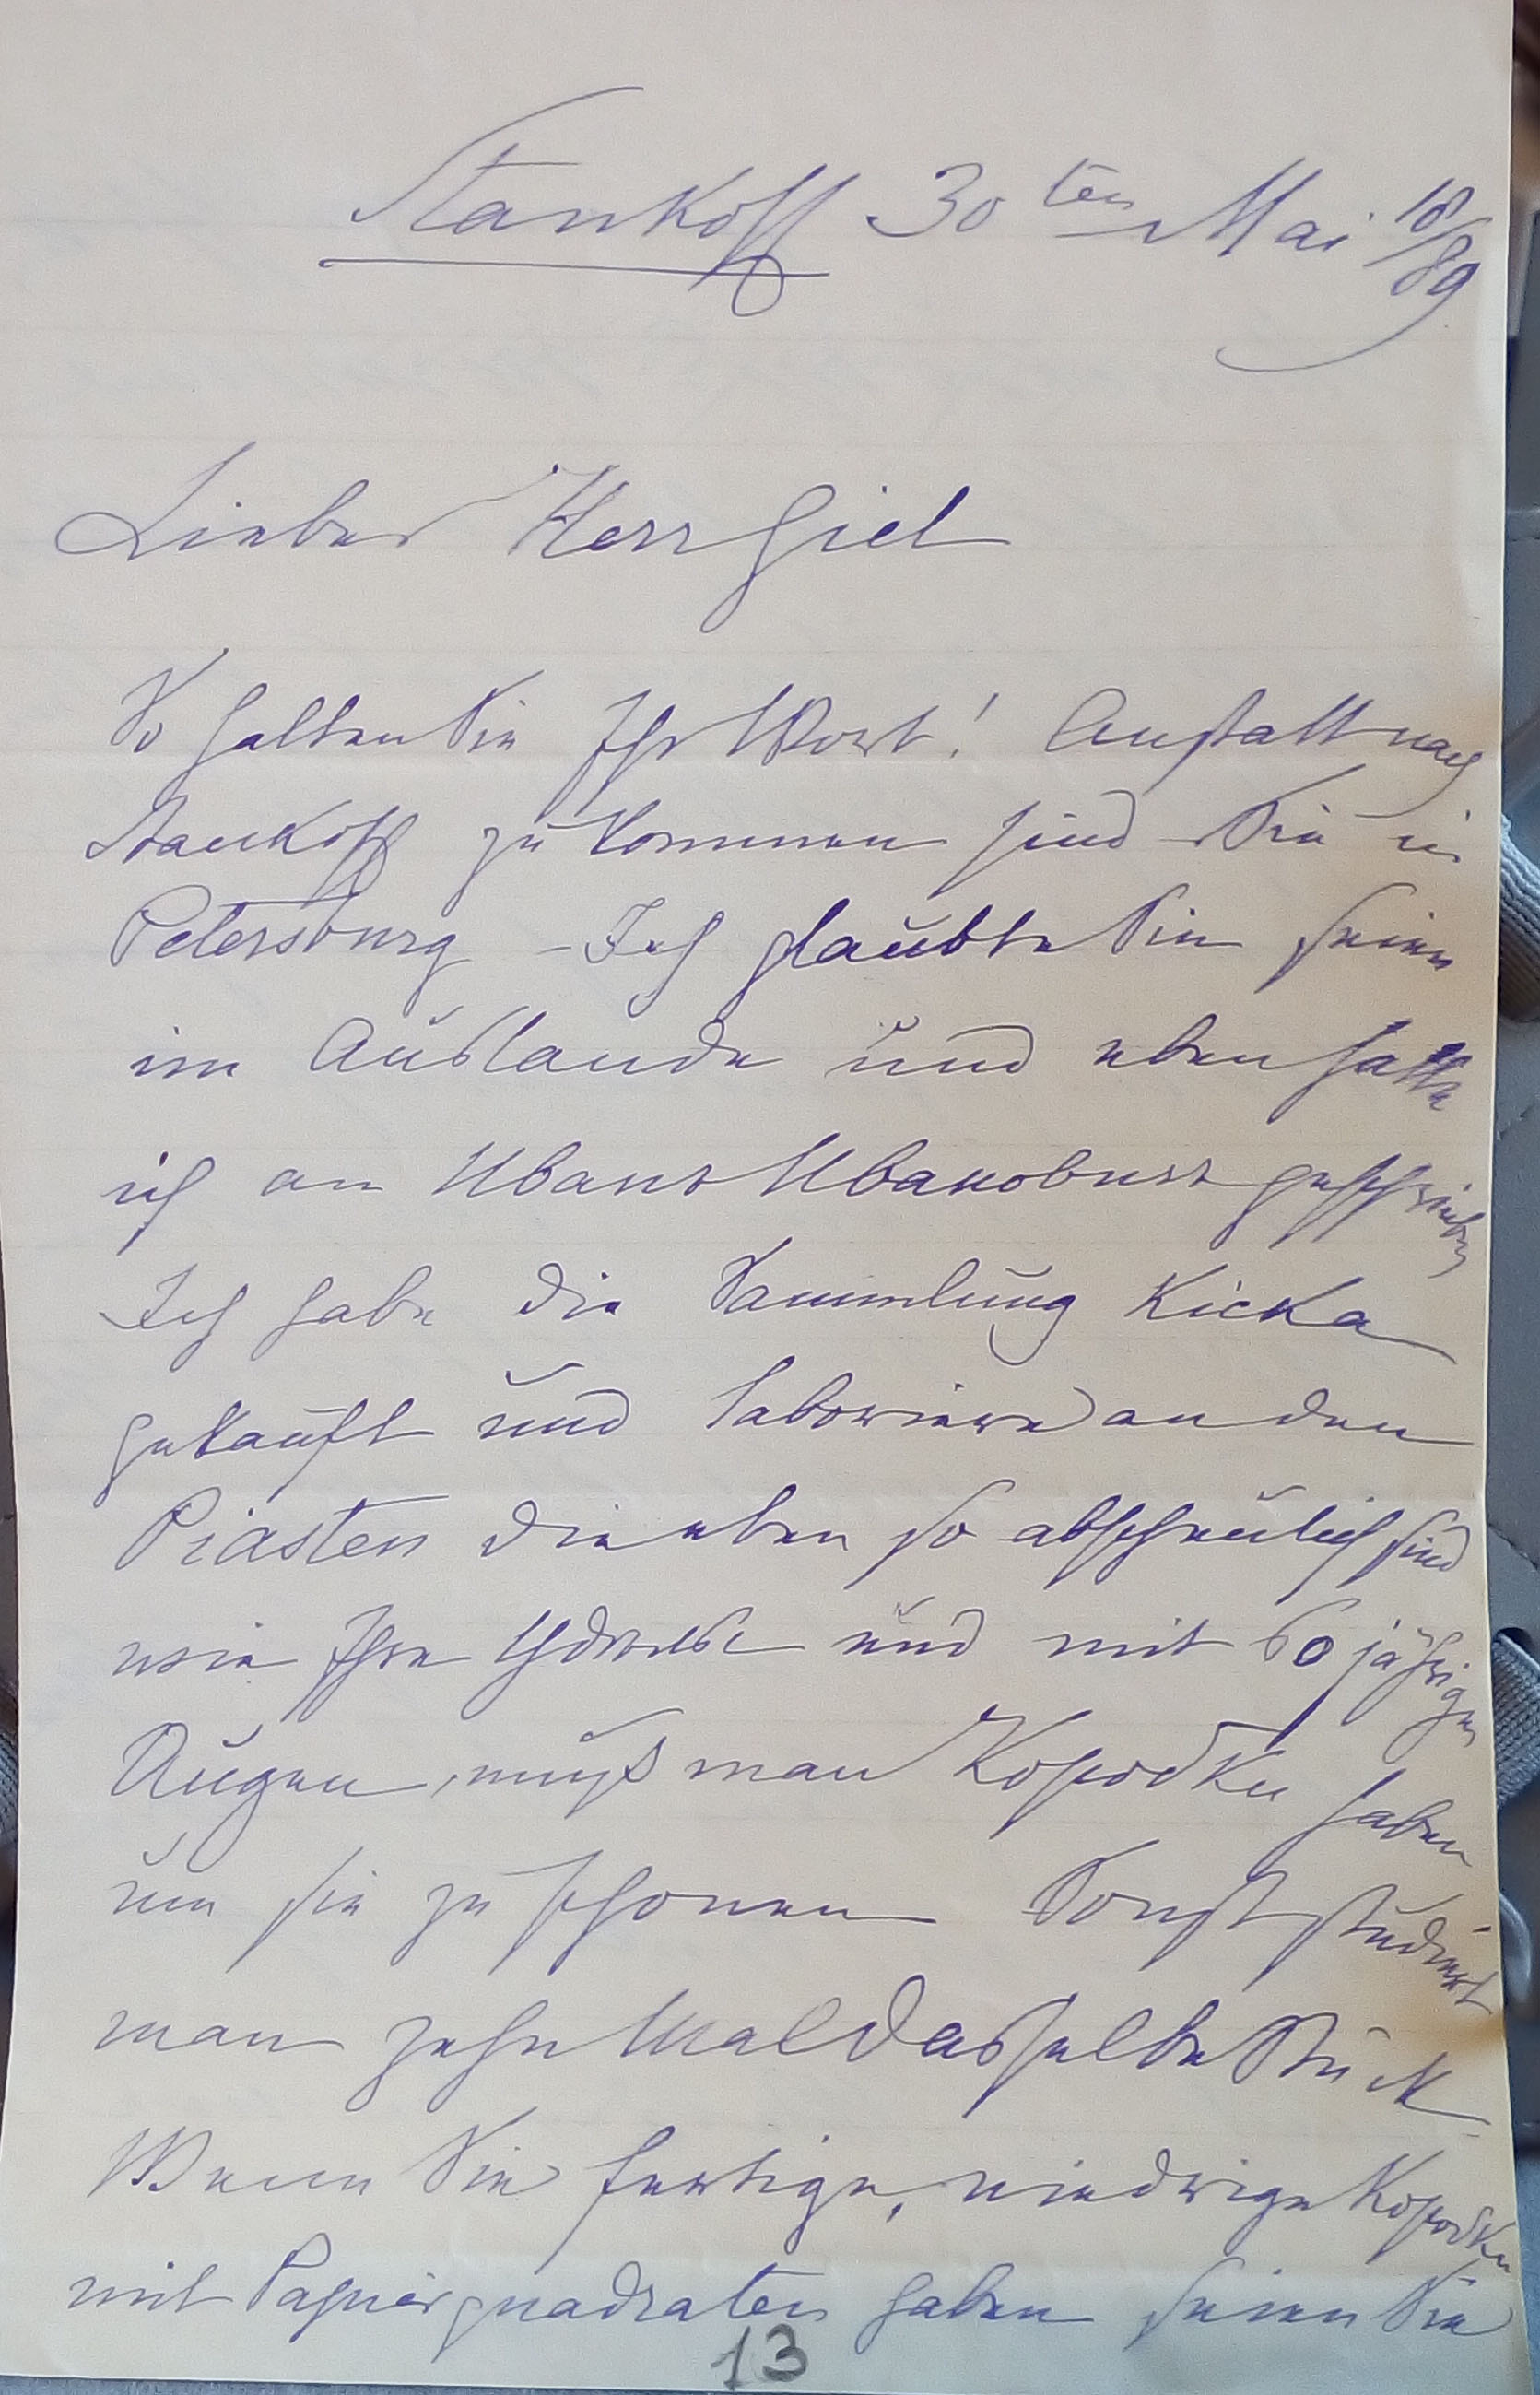 Stankoff 30ten Mai 18/89
Lieber Herr Giel
So halten Sie Ihr Wort! Anstatt nach
Stankoff zu kommen sind Sie in
Petersburg – Ich glaubte Sie seien
im Auslande und eben hatte
ich an Иванъ Ивановичъ geschrieben
Ich habe die Sammlung Kicka
gekauft und laborire an den
Piasten die eben so abscheulich sind
wie Ihre und mit 60 jährigen
Augen, muß man Коробки haben
um sie zu schonen Sonst studirt
man zehn Mal dasselbe Stück
Wenn Sie fertige, niedrige Коробки
mit Papierquadraten haben seien Sie
13